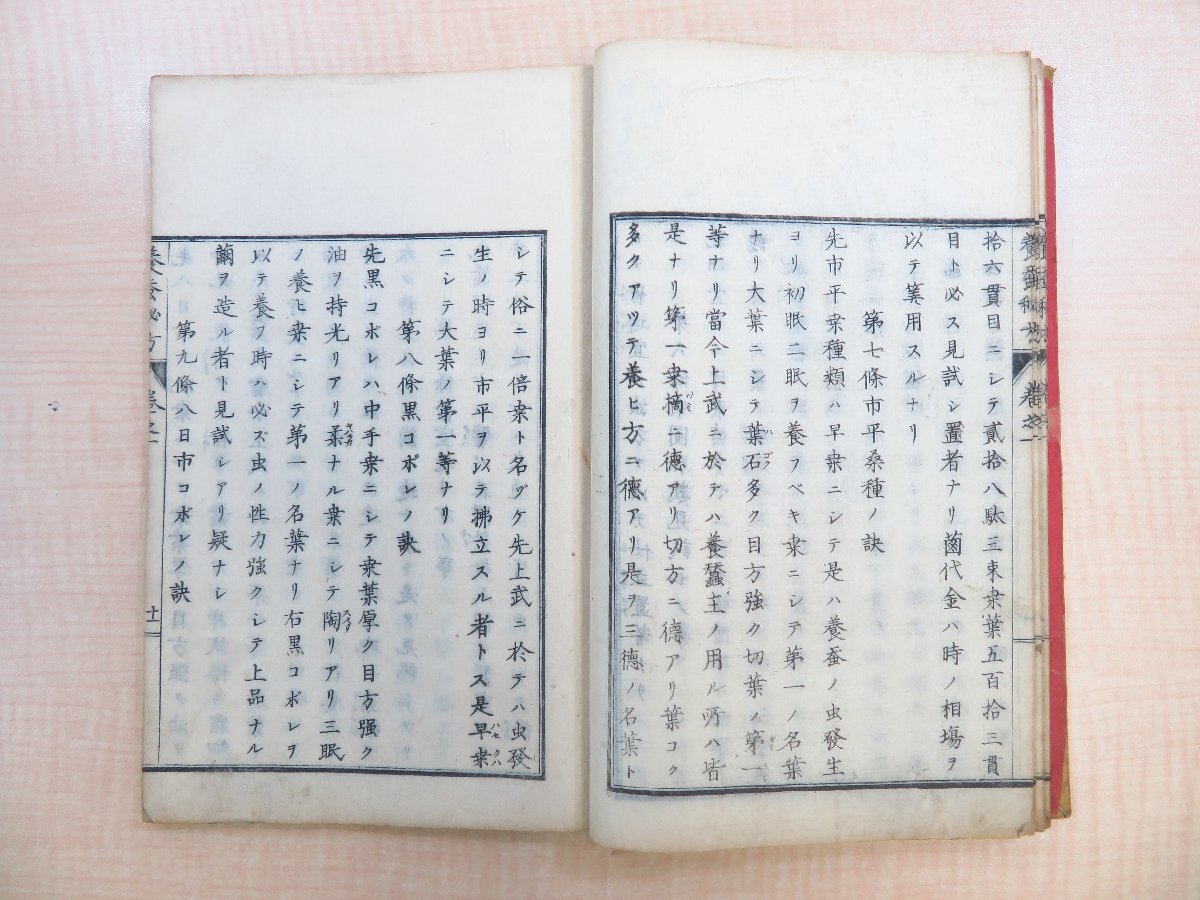 拾六貫目ニシテ貳拾八駄三束桒葉五百拾三貫
目ト必ス見試シ置者ナリ歯代金ハ時ノ相場ヲ
以テ筭用スルナリ
第七條市平桑種ノ訣
先市平桒種類ハ早桒ニシテ是ハ養蚕ノ虫發生
ヨリ初眠二眠ヲ養フベキ桒ニシテ第一ノ名葉
ナリ大葉ニシテ葉石多ク目方強ク切葉ノ第一
等ナリ當今上武ニ於テハ養蠶主ノ用ル所ハ皆
是ナリ第一桒摘ニ德アリ切方ニ德アリ葉コク
多クアツテ養ヒ方ニ德アリ是ヲ三德ノ名葉ト
卷之一
シテ俗ニ一倍桒ト名ヅケ先上武ニ於テハ虫發
生ノ時ヨリ市平ヲ以テ拂立スル者トス是早桒
ニシテ大葉ノ第一等ナリ
第八條黒コボレノ訣
先黒コボレハ中手桒ニシテ桒葉厚ク目方强ク
油ヲ持光リアリ柔ナル桒ニシテ陶リアリ三眠
ノ養ヒ桒ニシテ第一ノ名葉ナリ右黒コボレヲ
以テ養フ時ハ必ズ虫ノ性力強クシテ上品ナル
繭ヲ造ル者ト見試シアリ疑ナシ
第九條八日市コボレノ訣
養蚕必方
卷之一
廿